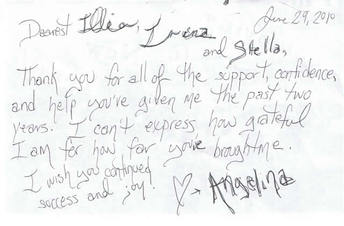 June 29, 2010
Dearest Illia, Irena
and Stella,
Thank you for all of the support, confidence,
and help you've given me the past two
years. I can't express how grateful
I am for how far you've brought me.
I wish you continued
success and joy!
♡→ Angelina